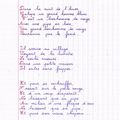 Dans la nuit de l'hiver
Galope un grand homme blanc
C'est un bonhomme de neige
Avec une pipe en bois
Un grand bonhomme de neige
Poursuivi par le froid
Il arrive au village
Voyant de la lumière
Le voilà rassuré
Dans une petite maison
Il entre sans frapper
Et pour se réchauffer
S'assoit sur le poêle rouge
Et d'un coup disparaît
Ne laissant que sa pipe
Au milieu d'une flaque d'eau
Ne laissant que sa pipe
Et puis son vieux chapeau